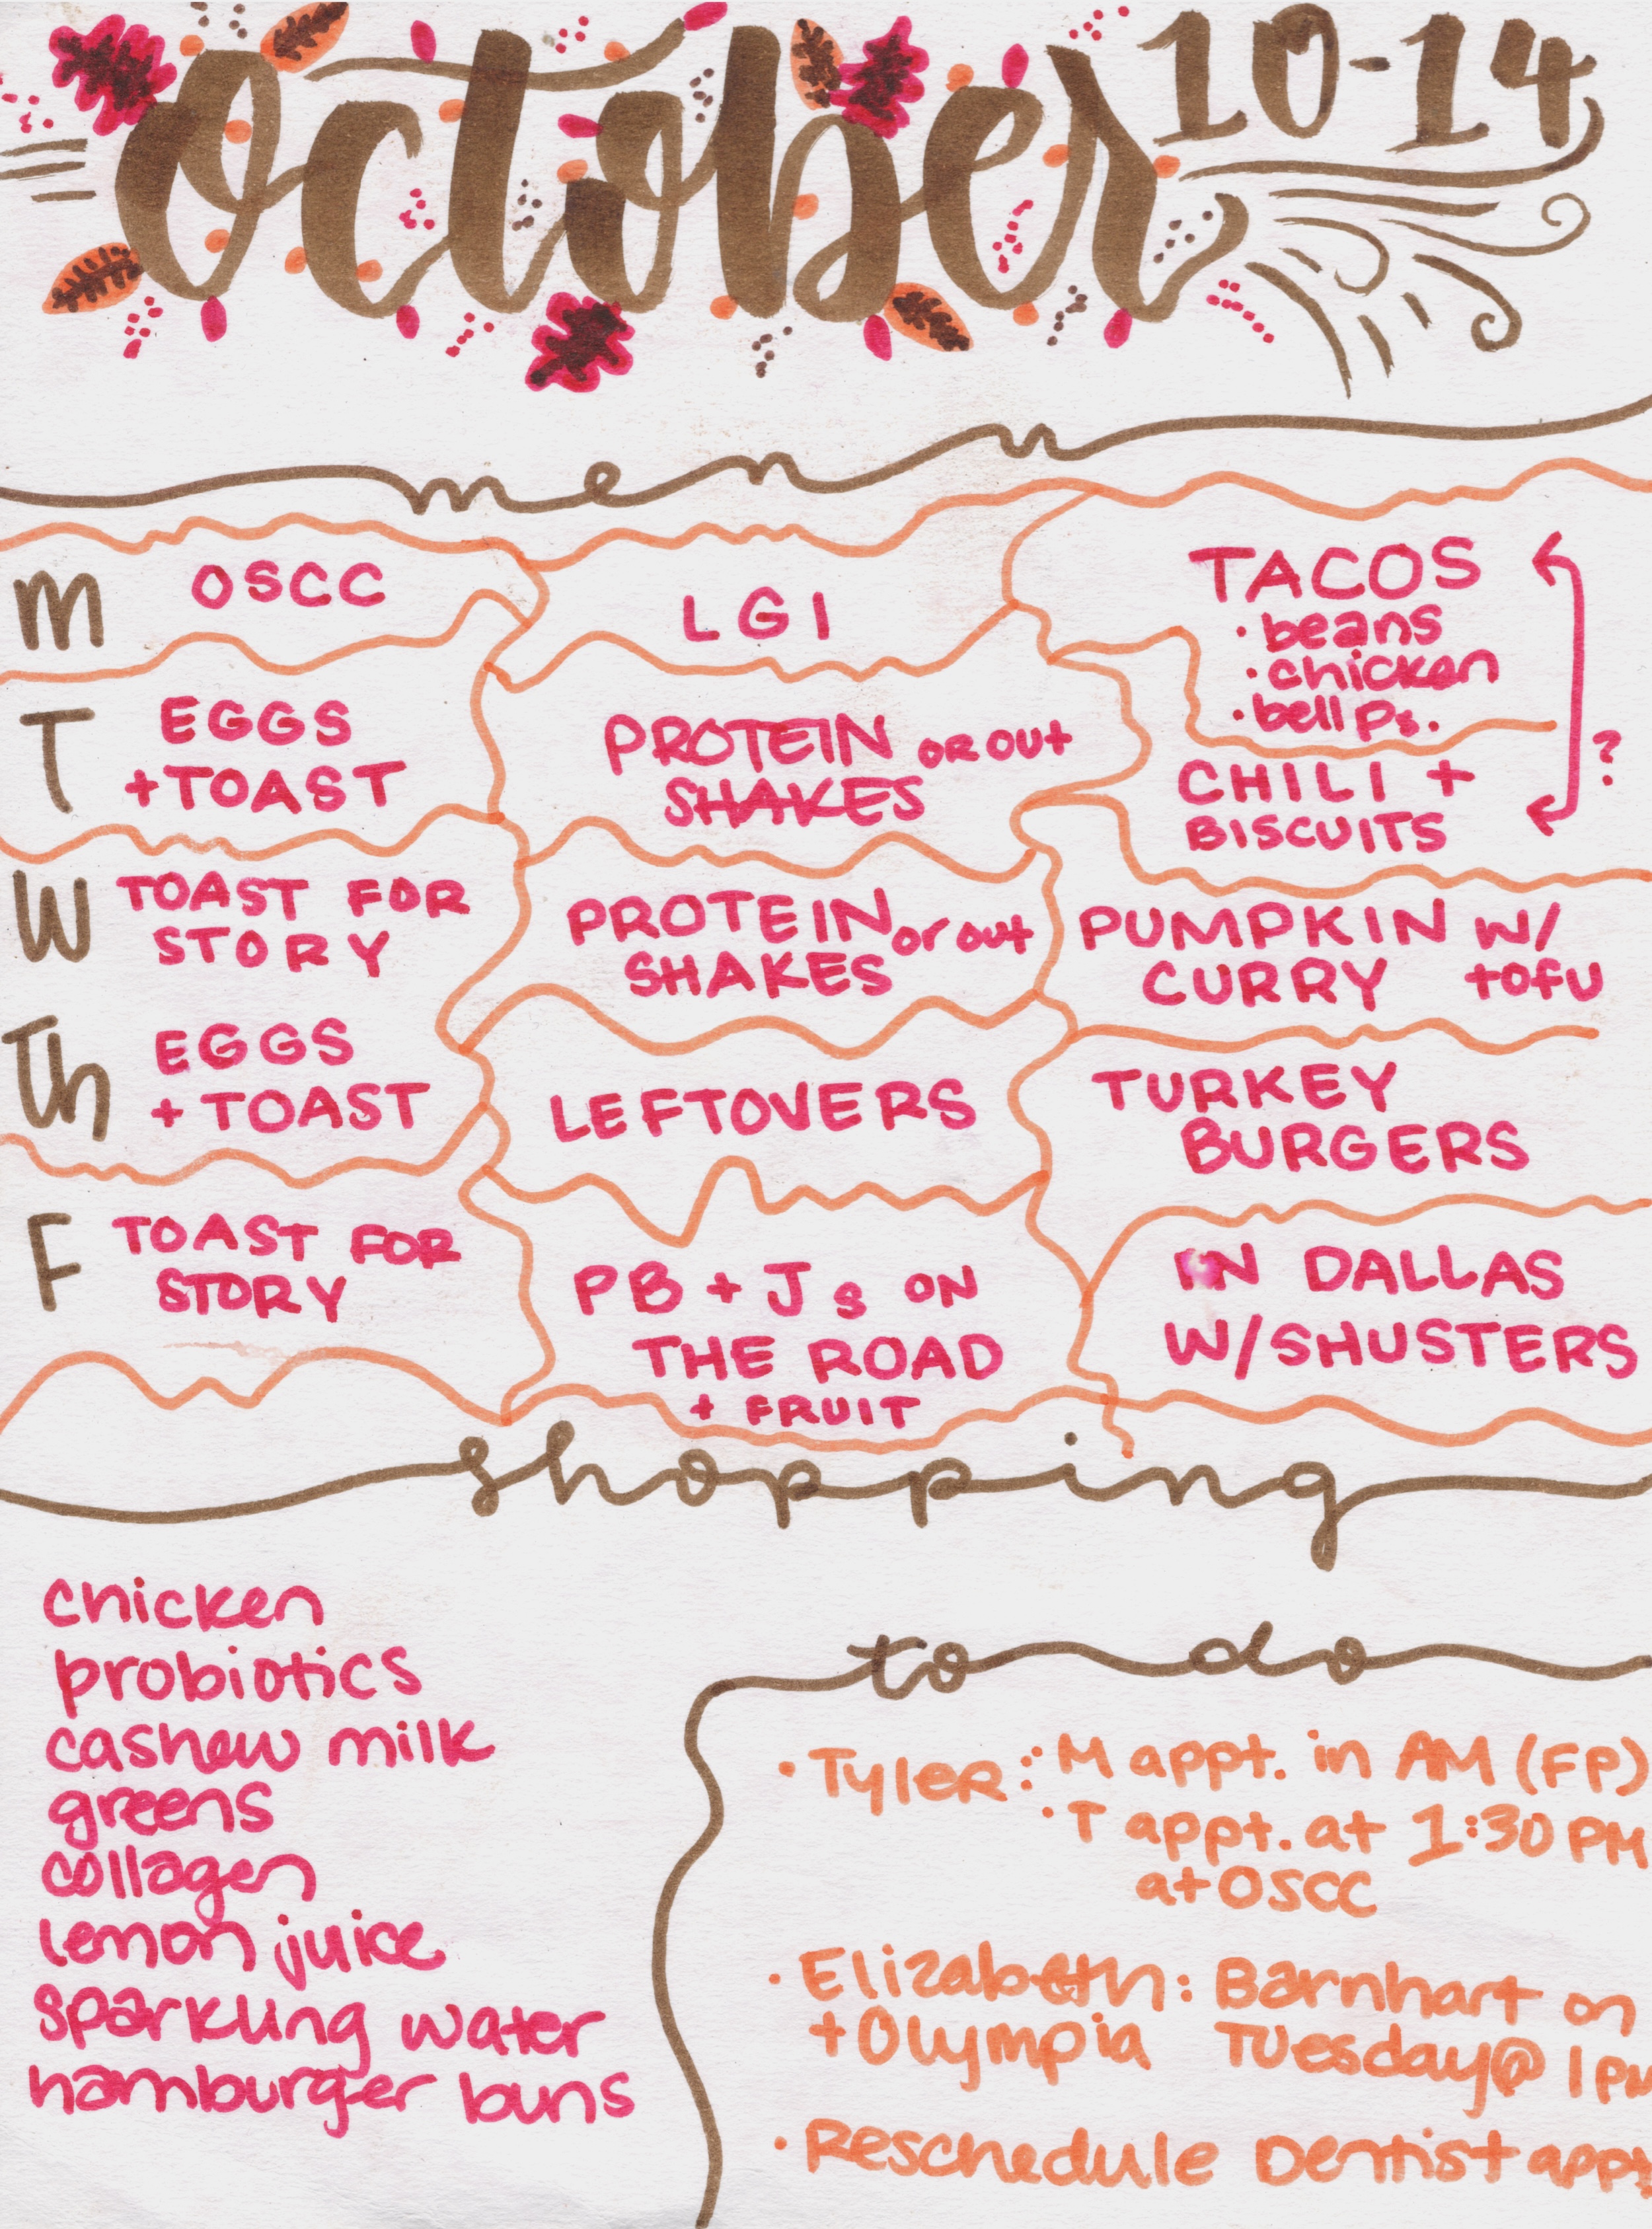 october 10-14
menu
M OSCC
LGI
TACOS
• beans
• chicken
• bell ps.
T EGGS
+ TOAST
PROTEIN or out
SHAKES
CHILI +
BISCUITS
?
W TOAST FOR
STORY
PROTEIN or out
SHAKES
PUMPKIN w/
CURRY tofu
Th EGGS
+ TOAST
LEFTOVERS
TURKEY
BURGERS
F TOAST FOR
STORY
PB + Js ON
THE ROAD
+ FRUIT
IN DALLAS
W/SHUSTERS
shopping
chicken
probiotics
cashew milk
greens
collagen
lemon juice
sparkling water
hamburger buns
to do
• Tyler: • M appt. in AM (FP)
• T appt. at 1:30 PM
at OSCC
• Elizabeth: Barnhart on
+ Olympia Tuesday @ 1pm
• Reschedule Dentist appt.